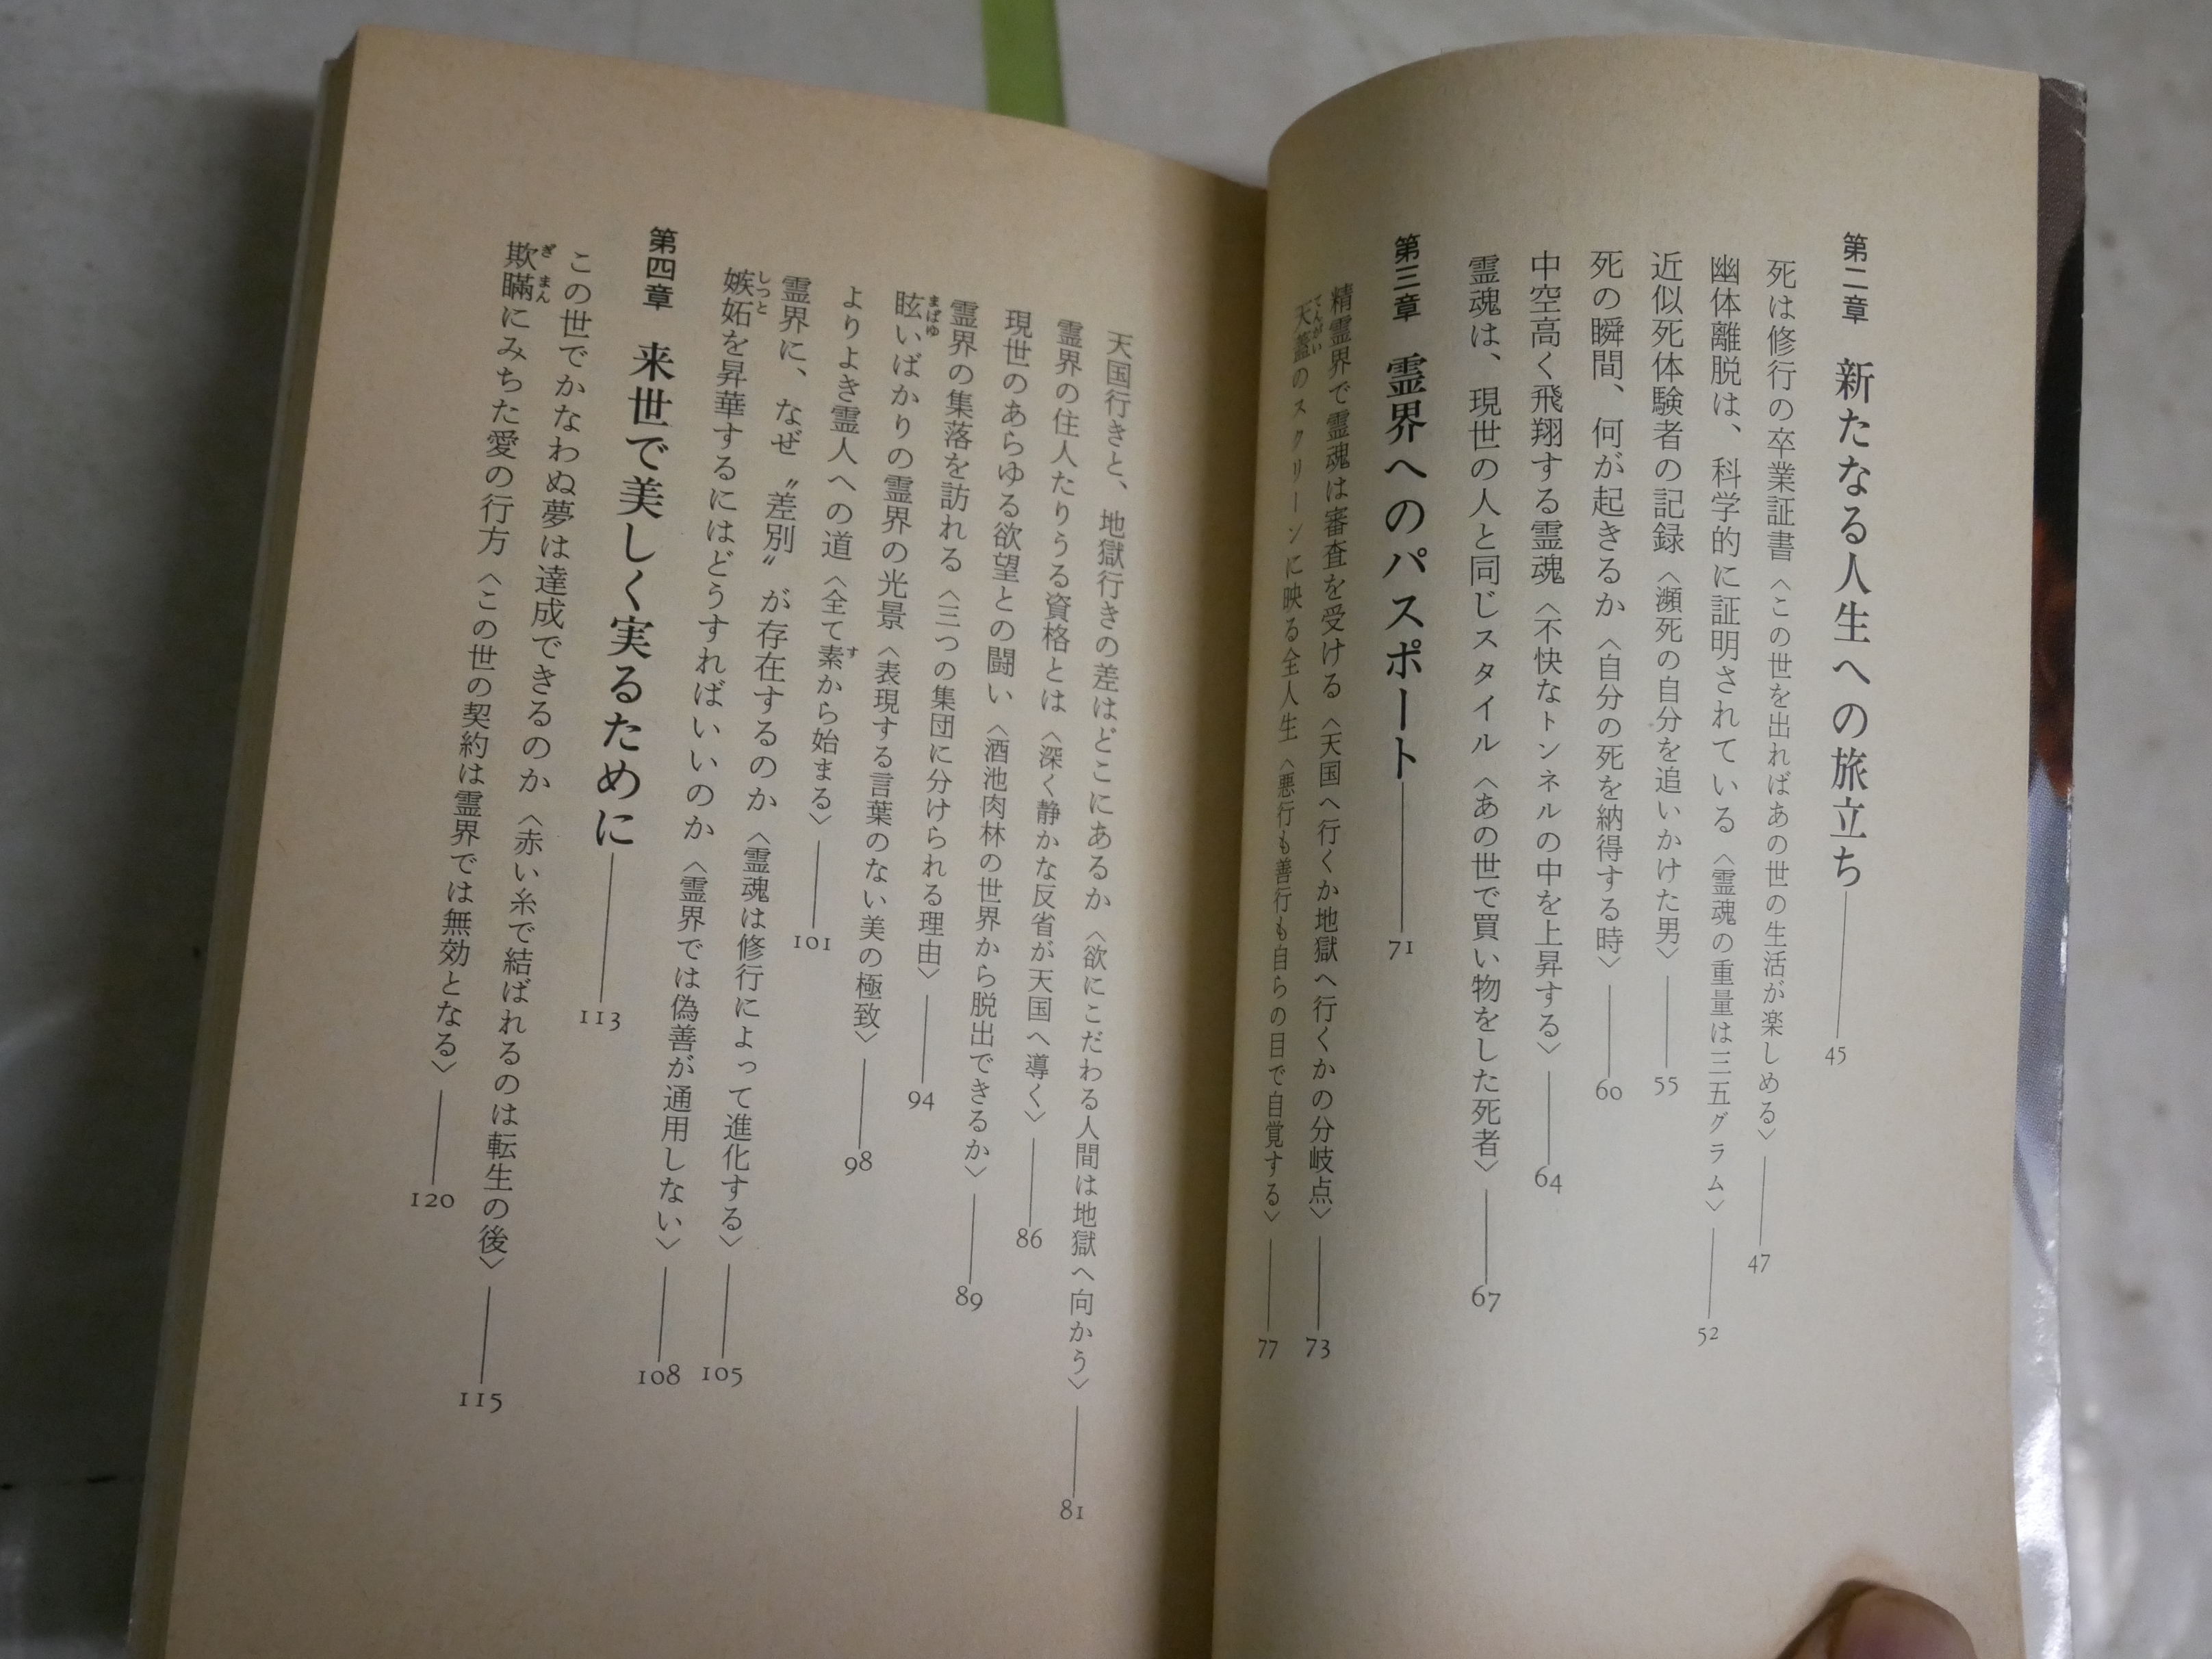 第二章 新たなる人生への旅立ち――45
死は修行の卒業証書〈この世を出ればあの世の生活が楽しめる〉――47
幽体離脱は、科学的に証明されている〈霊魂の重量は三五グラム〉――52
近似死体験者の記録〈瀕死の自分を追いかけた男〉――55
死の瞬間、何が起きるか〈自分の死を納得する時〉――60
中空高く飛翔する霊魂〈不快なトンネルの中を上昇する〉――64
霊魂は、現世の人と同じスタイル〈あの世で買い物をした死者〉――67
第三章 霊界へのパスポート――71
精霊界で霊魂は審査を受ける〈天国へ行くか地獄へ行くかの分岐点〉――73
天蓋のスクリーンに映る全人生〈悪行も善行も自らの目で自覚する〉――77
天国行きと、地獄行きの差はどこにあるか〈欲にこだわる人間は地獄へ向かう〉――81
霊界の住人たりうる資格とは〈深く静かな反省が天国へ導く〉――86
現世のあらゆる欲望との闘い〈酒池肉林の世界から脱出できるか〉――89
霊界の集落を訪れる〈三つの集団に分けられる理由〉――94
眩いばかりの霊界の光景〈表現する言葉のない美の極致〉――98
よりよき霊人への道〈全て素から始まる〉――101
霊界に、なぜ〝差別〟が存在するのか〈霊魂は修行によって進化する〉――105
嫉妬を昇華するにはどうすればいいのか〈霊界では偽善が通用しない〉――108
第四章 来世で美しく実るために――113
この世でかなわぬ夢は達成できるのか〈赤い糸で結ばれるのは転生の後〉――115
欺瞞にみちた愛の行方〈この世の契約は霊界では無効となる〉――120